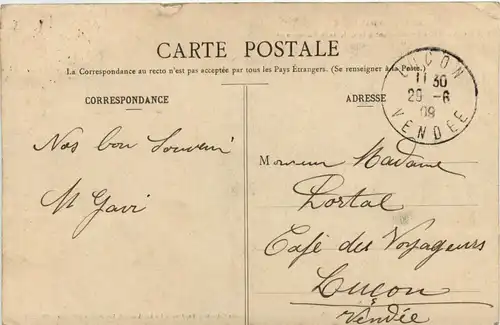 CARTE POSTALE
La Correspondance au recto n'est pas acceptée par tous les Pays Étrangers. (Se renseigner à la Poste.)
CORRESPONDANCE
ADRESSE
LUÇON
11 30
29 - 6
09
VENDÉE
Nos bon Souvenir
M Gavi
Monsieur Madame
Lortal
Café des Voyageurs
Luçon
Vendée